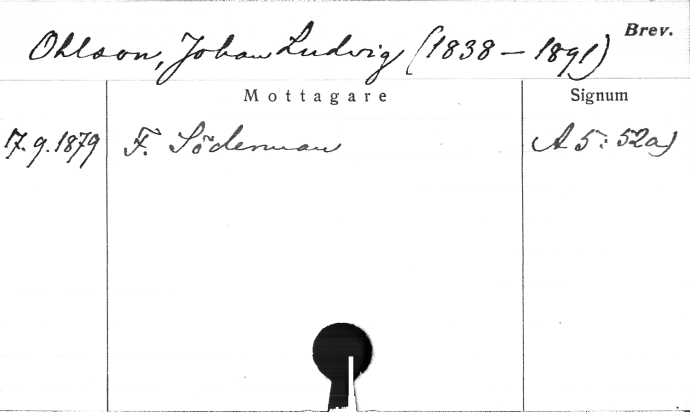 Ohlson, Johan Ludvig (1838 – 1891) Brev.
Mottagare Signum
17.9.1879 F. Söderman A 5: 52a)